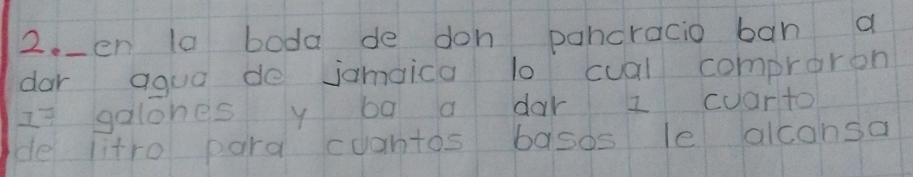 2._ en la boda de don pancracio ban a
dar agua de jamaica lo cual compraron
galones y ba a dar 1 cuarto
de litro para cuantos basos le alcansa